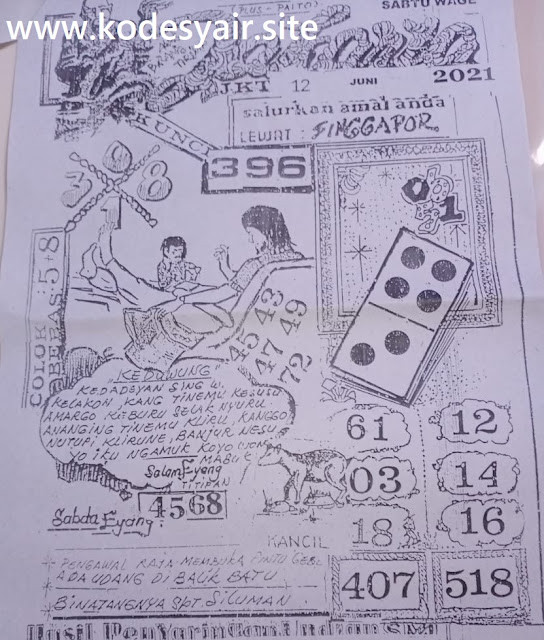 www.kodesyair.site
(PLUS - PAITO)
SABTU WAGE
JKT 12 JUNI 2021
salurkan amal anda
LEWAT : SINGGAPOR
KUNCI
396
3 0 8
1
COLOK BEBAS : 5+8
43
49
45
47
72
"KEDUWUNG"
KEDADEYAN SING W.
KELAKON, KANG TINEMU KEDUSU
AMARGO KEBURU SELAK NYURU
ANANGING TINEMU KLIRU, KANGGO
NUTUPI KLIRUNE, BANJUR NESU
YO IKU NGAMUK KOYO WONG
MABUK
Salam Eyang
TITIPAN
4568
Sabda Eyang :
61
12
03
14
18
16
KANCIL
407
518
PENGAWAL RAJA MEMBUKA PINTU
ADA UDANG DI BALIK BATU
BINATANGNYA SPT. SILUMAN